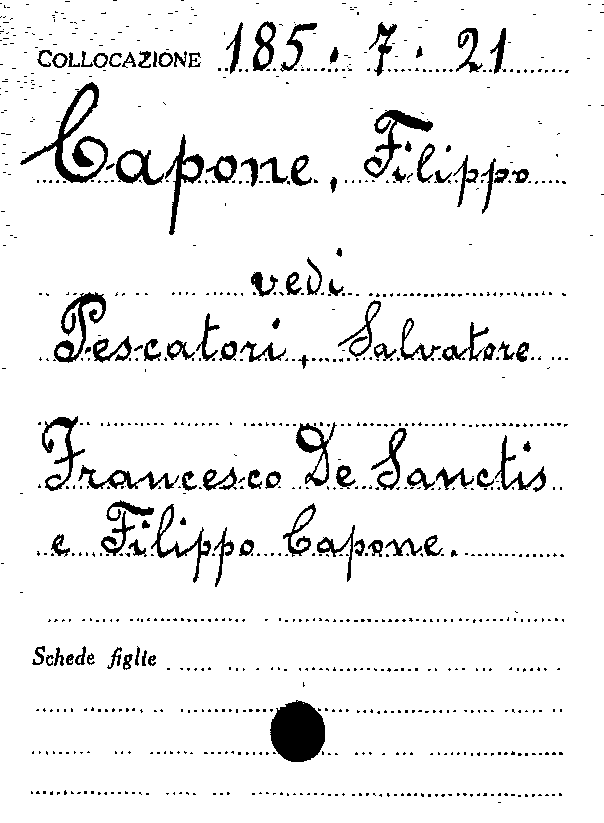 COLLOCAZIONE 185. 7. 21
Capone, Filippo
vedi
Pescatori, Salvatore
Francesco De Sanctis
e Filippo Capone.
Schede figlie